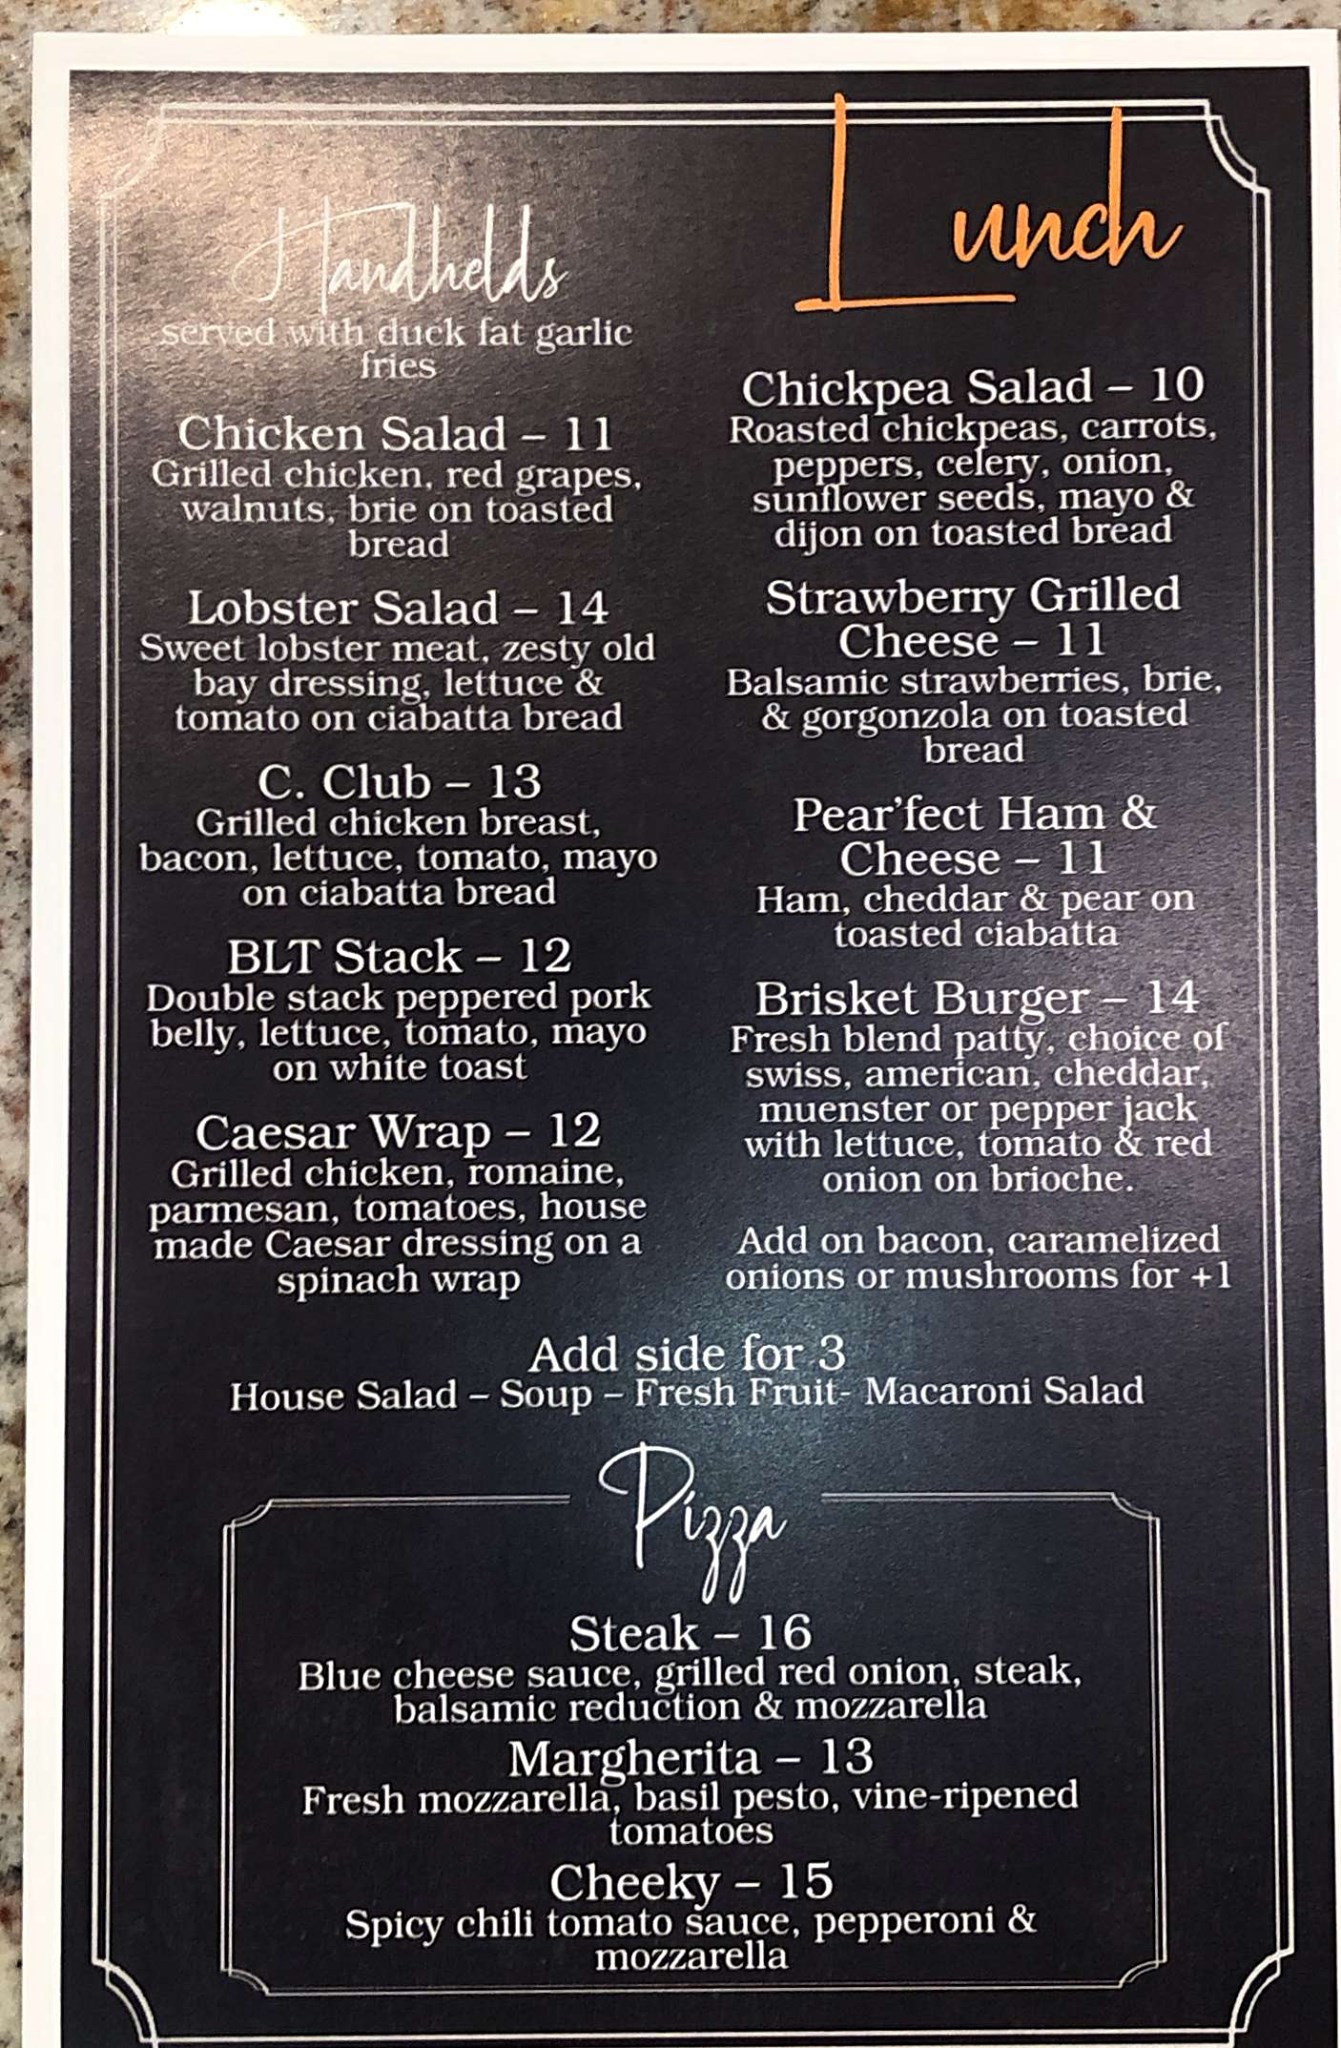 Lunch
Handhelds
served with duck fat garlic
fries
Chicken Salad – 11
Grilled chicken, red grapes,
walnuts, brie on toasted
bread
Lobster Salad – 14
Sweet lobster meat, zesty old
bay dressing, lettuce &
tomato on ciabatta bread
C. Club – 13
Grilled chicken breast,
bacon, lettuce, tomato, mayo
on ciabatta bread
BLT Stack – 12
Double stack peppered pork
belly, lettuce, tomato, mayo
on white toast
Caesar Wrap – 12
Grilled chicken, romaine,
parmesan, tomatoes, house
made Caesar dressing on a
spinach wrap
Chickpea Salad – 10
Roasted chickpeas, carrots,
peppers, celery, onion,
sunflower seeds, mayo &
dijon on toasted bread
Strawberry Grilled
Cheese – 11
Balsamic strawberries, brie,
& gorgonzola on toasted
bread
Pear'fect Ham &
Cheese – 11
Ham, cheddar & pear on
toasted ciabatta
Brisket Burger – 14
Fresh blend patty, choice of
swiss, american, cheddar,
muenster or pepper jack
with lettuce, tomato & red
onion on brioche.
Add on bacon, caramelized
onions or mushrooms for +1
Add side for 3
House Salad – Soup – Fresh Fruit- Macaroni Salad
Pizza
Steak – 16
Blue cheese sauce, grilled red onion, steak,
balsamic reduction & mozzarella
Margherita – 13
Fresh mozzarella, basil pesto, vine-ripened
tomatoes
Cheeky – 15
Spicy chili tomato sauce, pepperoni &
mozzarella